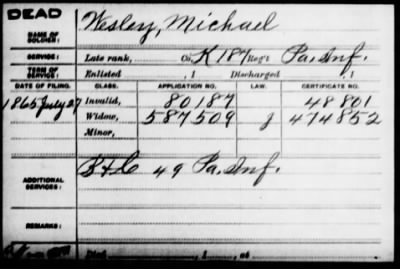 DEAD
NAME OF SOLDIER: Wesley, Michael
SERVICE: Late rank, Co. K 187 Reg't Pa. Inf.
TERM OF SERVICE: Enlisted , 1 Discharged , 1
DATE OF FILING. CLASS. APPLICATION NO. LAW. CERTIFICATE NO.
1865 July 27 Invalid, 80187 48801
Widow, 587509 J 474852
Minor,
ADDITIONAL SERVICES: B & C 49 Pa. Inf.
REMARKS:
Died , 1 , at